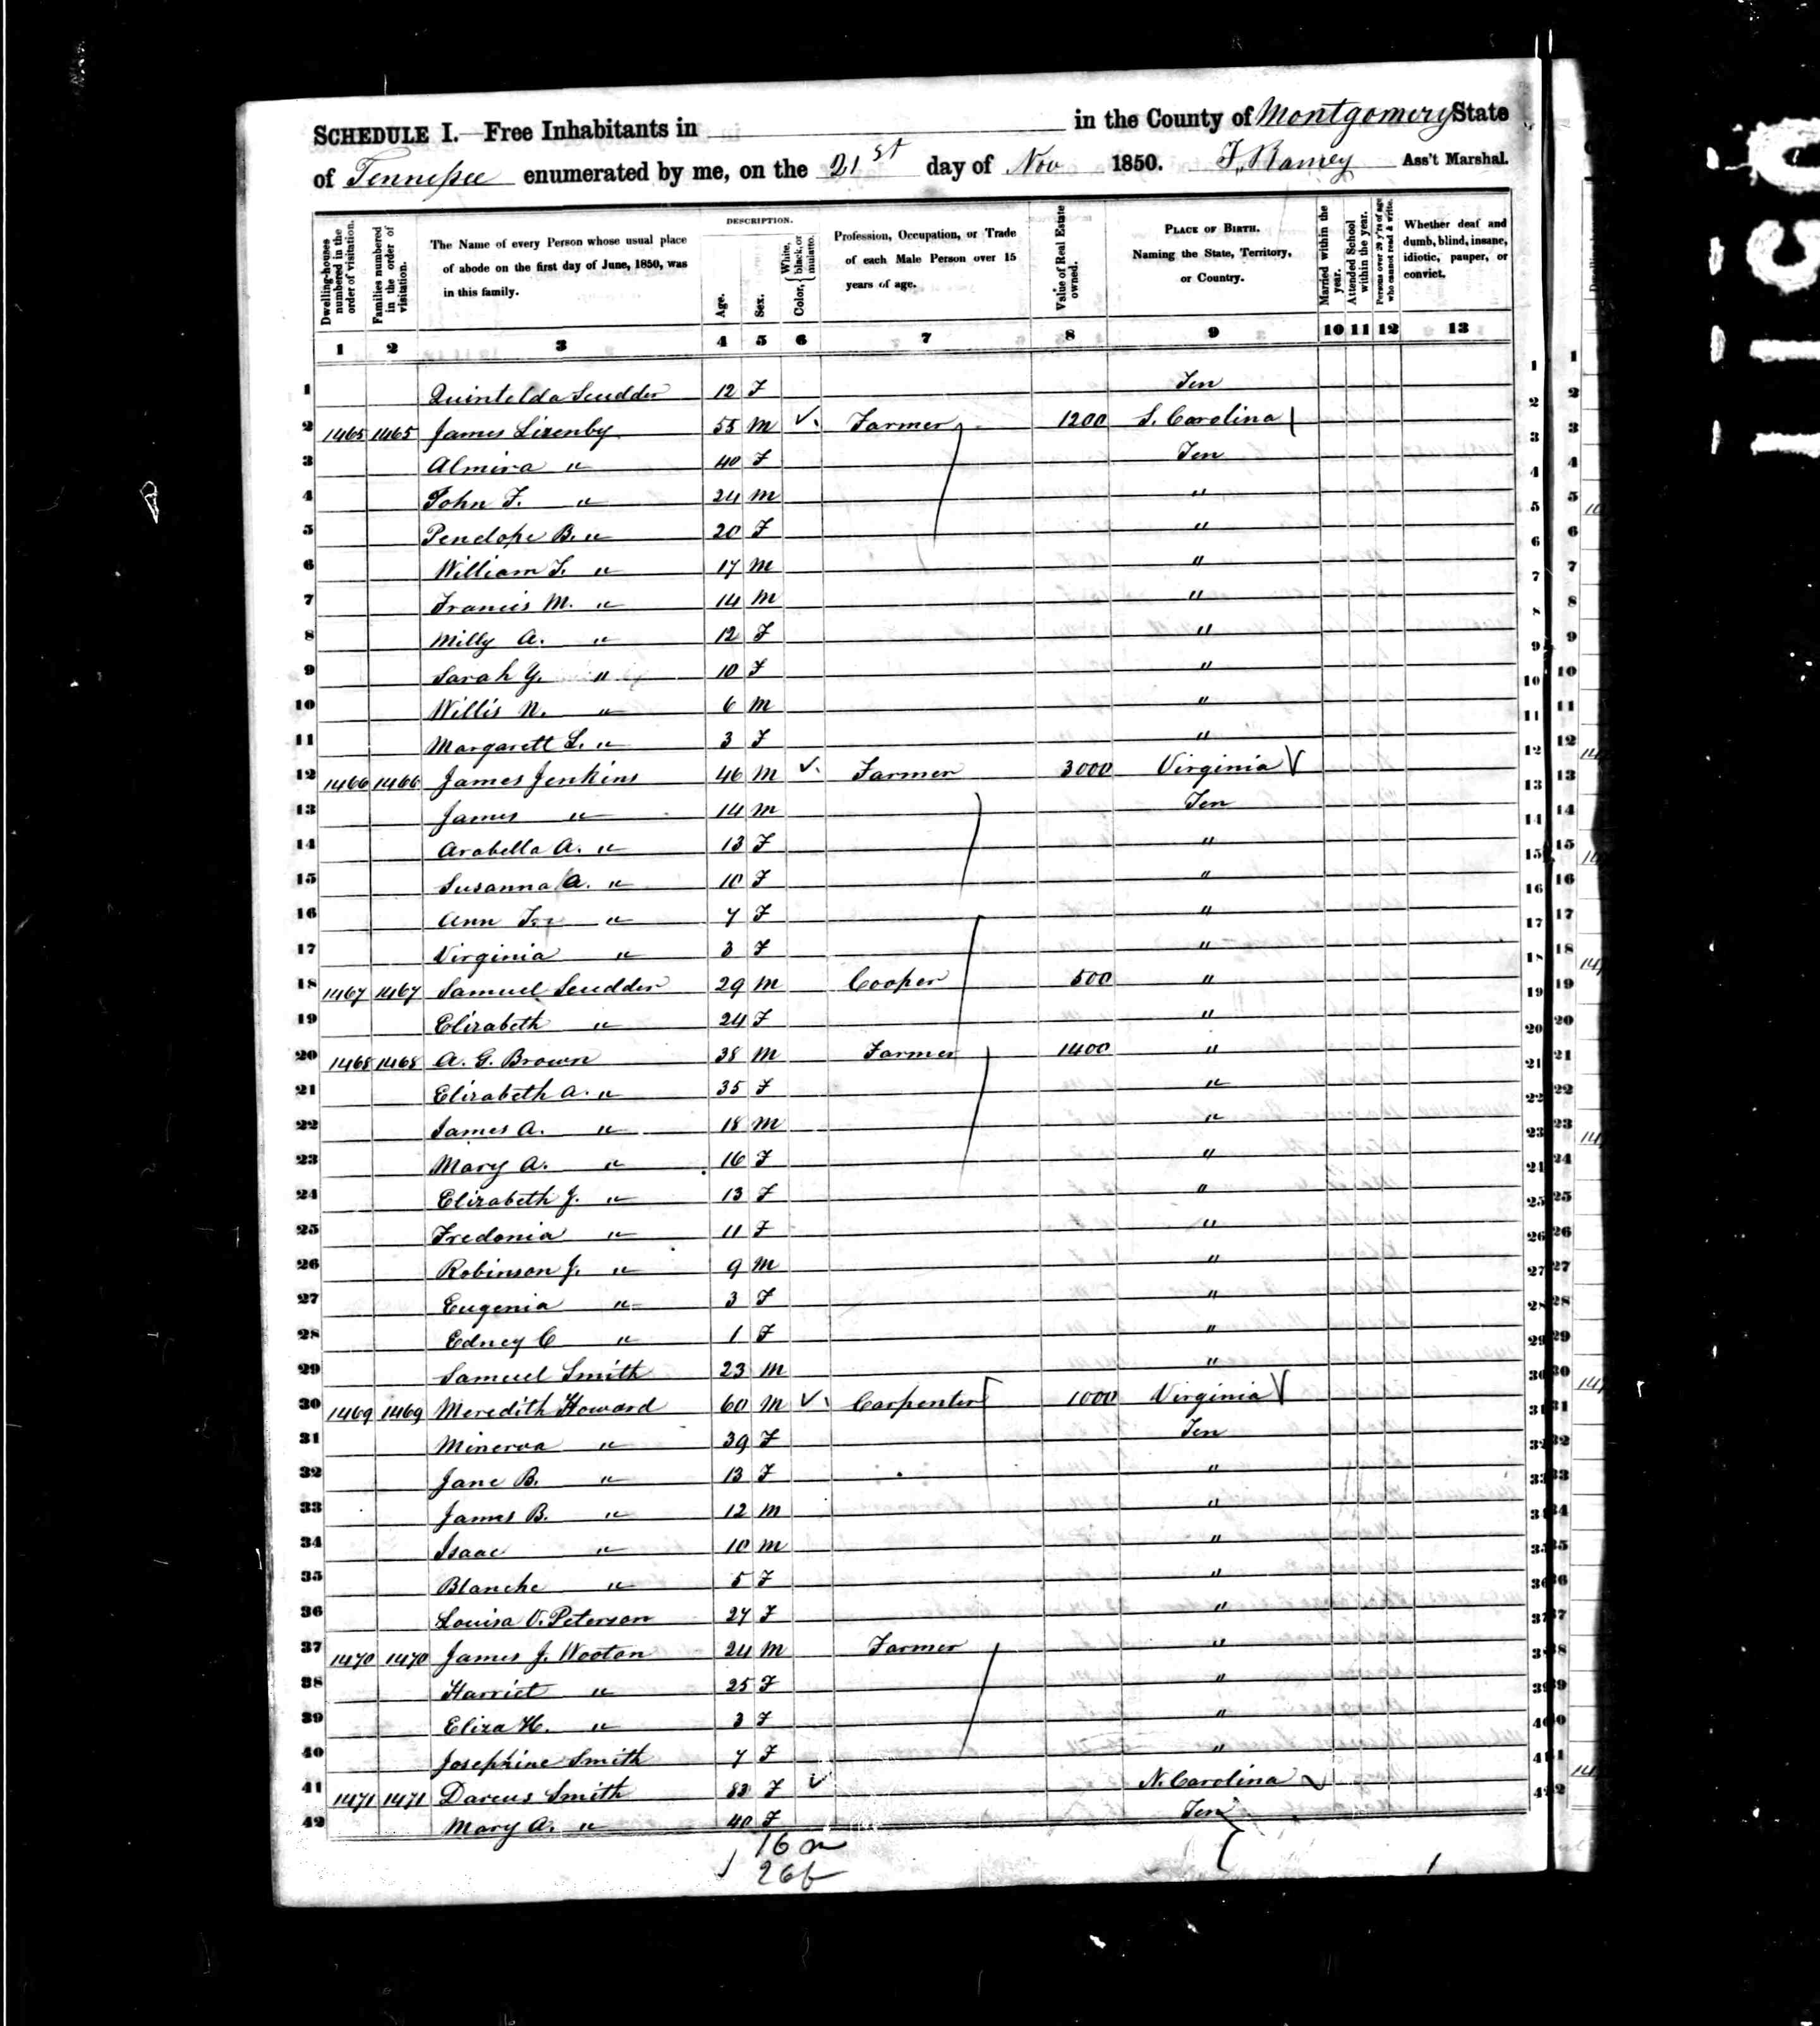 SCHEDULE I.—Free Inhabitants in in the County of Montgomery State
of Tennessee enumerated by me, on the 21st day of Nov 1850. Ass't Marshal.
Dwelling-houses numbered in the order of visitation.
Families numbered in the order of visitation.
The Name of every Person whose usual place of abode on the first day of June, 1850, was in this family.
DESCRIPTION.
Age.
Sex.
Color, { White, black, or mulatto.
Profession, Occupation, or Trade of each Male Person over 15 years of age.
Value of Real Estate owned.
PLACE OF BIRTH. Naming the State, Territory, or Country.
Married within the year.
Attended School within the year.
Persons over 20 y'rs of age who cannot read & write.
Whether deaf and dumb, blind, insane, idiotic, pauper, or convict.
1 2 3 4 5 6 7 8 9 10 11 12 13
1 Scudder 12 F Ten 1
2 1465 1465 James Lizenby 55 M Farmer 1200 S. Carolina 2
3 Almira " 40 F Ten 3
4 John F. " 24 M " 4
5 Penelope B. " 20 F " 5
6 William " 17 M " 6
7 Francis M. " 14 M " 7
8 Milly A. " 12 F " 8
9 Sarah Y. " 10 F " 9
10 Willis N. " 6 M " 10
11 Margarett L. " 3 F " 11
12 1466 1466 James Jenkins 46 M Farmer 3000 Virginia 12
13 James " 14 M Ten 13
14 Arabella A. " 13 F " 14
15 Susanna A. " 10 F " 15
16 Ann " 7 F " 16
17 Virginia " 3 F " 17
18 1467 1467 Samuel Scudder 29 M Cooper 500 " 18
19 Elizabeth " 24 F " 19
20 1468 1468 A. G. Brown 38 M Farmer 1400 " 20
21 Elizabeth A. " 35 F " 21
22 James A. " 18 M " 22
23 Mary A. " 16 F " 23
24 Elizabeth J. " 13 F " 24
25 Fredonia " 11 F " 25
26 Robinson J. " 9 M " 26
27 Eugenia " 3 F " 27
28 Edney C " 1 F " 28
29 Samuel Smith 23 M " 29
30 1469 1469 Meredith Howard 60 M Carpenter 1000 Virginia 30
31 Minerva " 39 F Ten 31
32 Jane B. " 13 F " 32
33 James B. " 12 M " 33
34 Isaac " 10 M " 34
35 Blanche " 5 F " 35
36 Louisa V. Peterson 27 F " 36
37 1470 1470 James J. Wooton 24 M Farmer " 37
38 Harriet " 25 F " 38
39 Eliza H. " 3 F " 39
40 Josephine Smith 7 F " 40
41 1471 1471 Darcus Smith 83 F N. Carolina 41
42 Mary A. " 40 F Ten 42
16 m
26 f